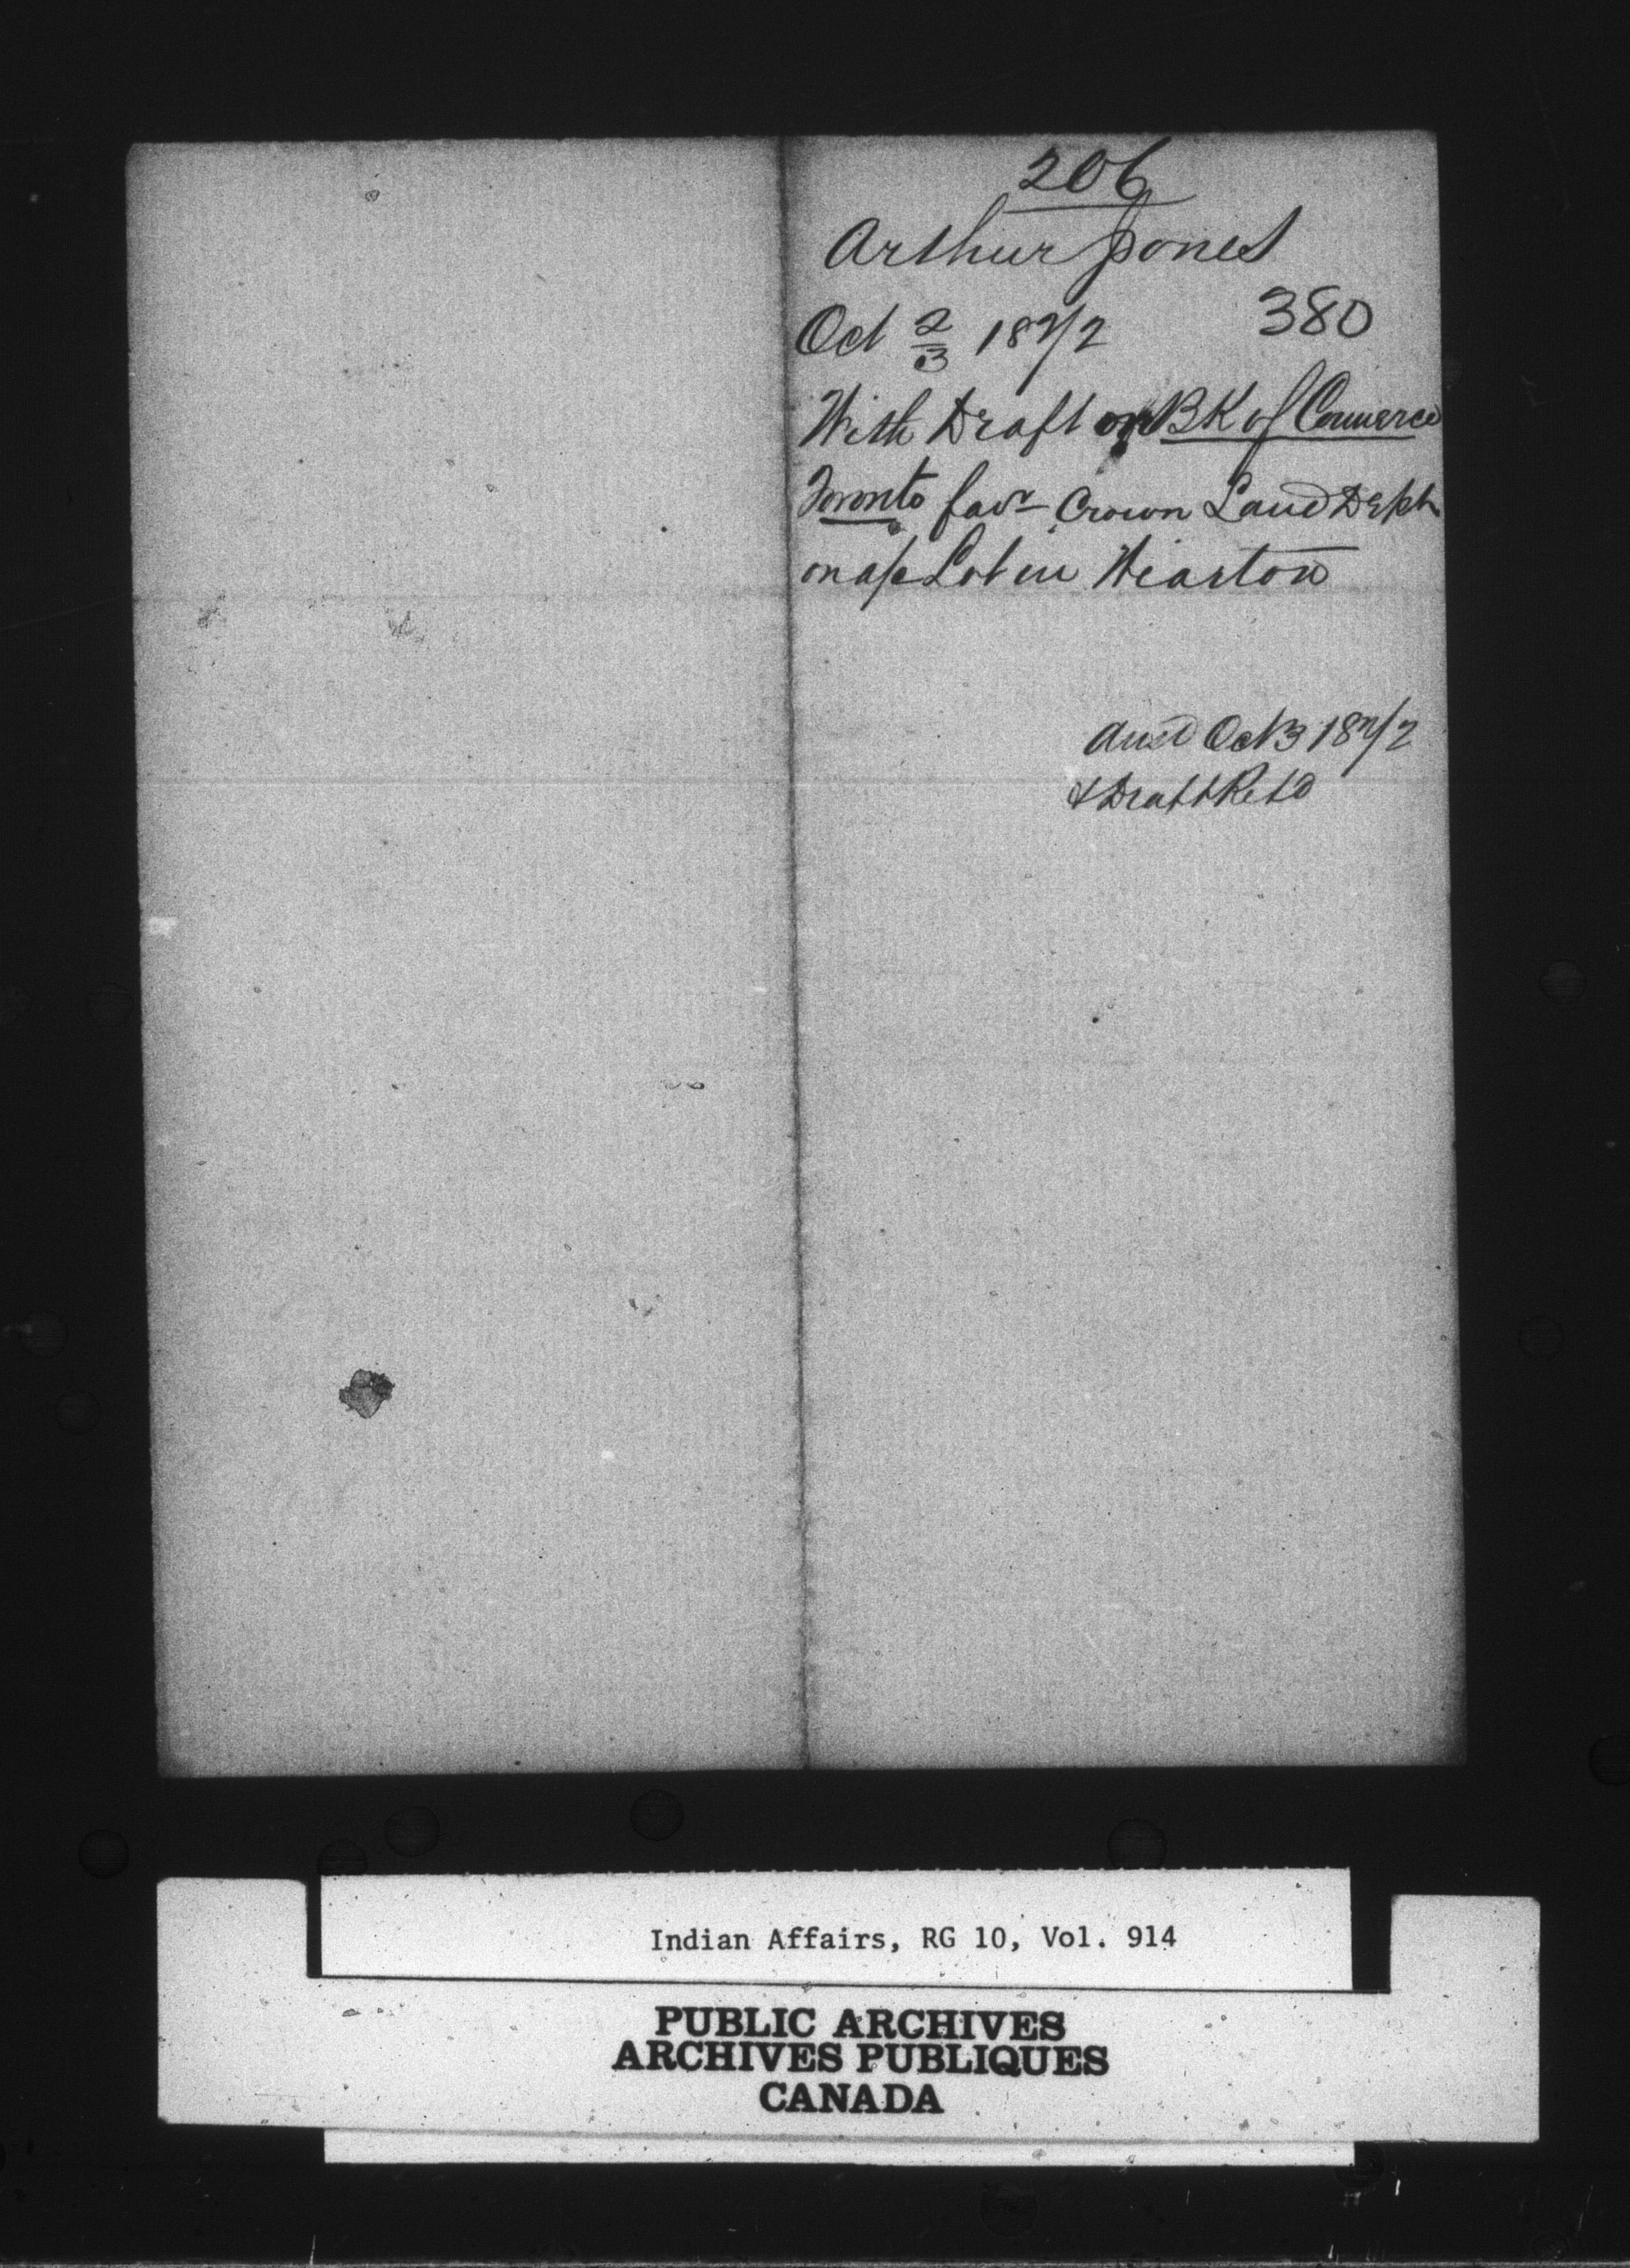 206
Arthur Jones
Oct 2/3 1872 380
With Draft on BK of Commerce
Toronto favr Crown Land Dept
on a/c Lot in Wiarton
Ansd Oct 3 1872
& Draft Retd
Indian Affairs, RG 10, Vol. 914
PUBLIC ARCHIVES
ARCHIVES PUBLIQUES
CANADA